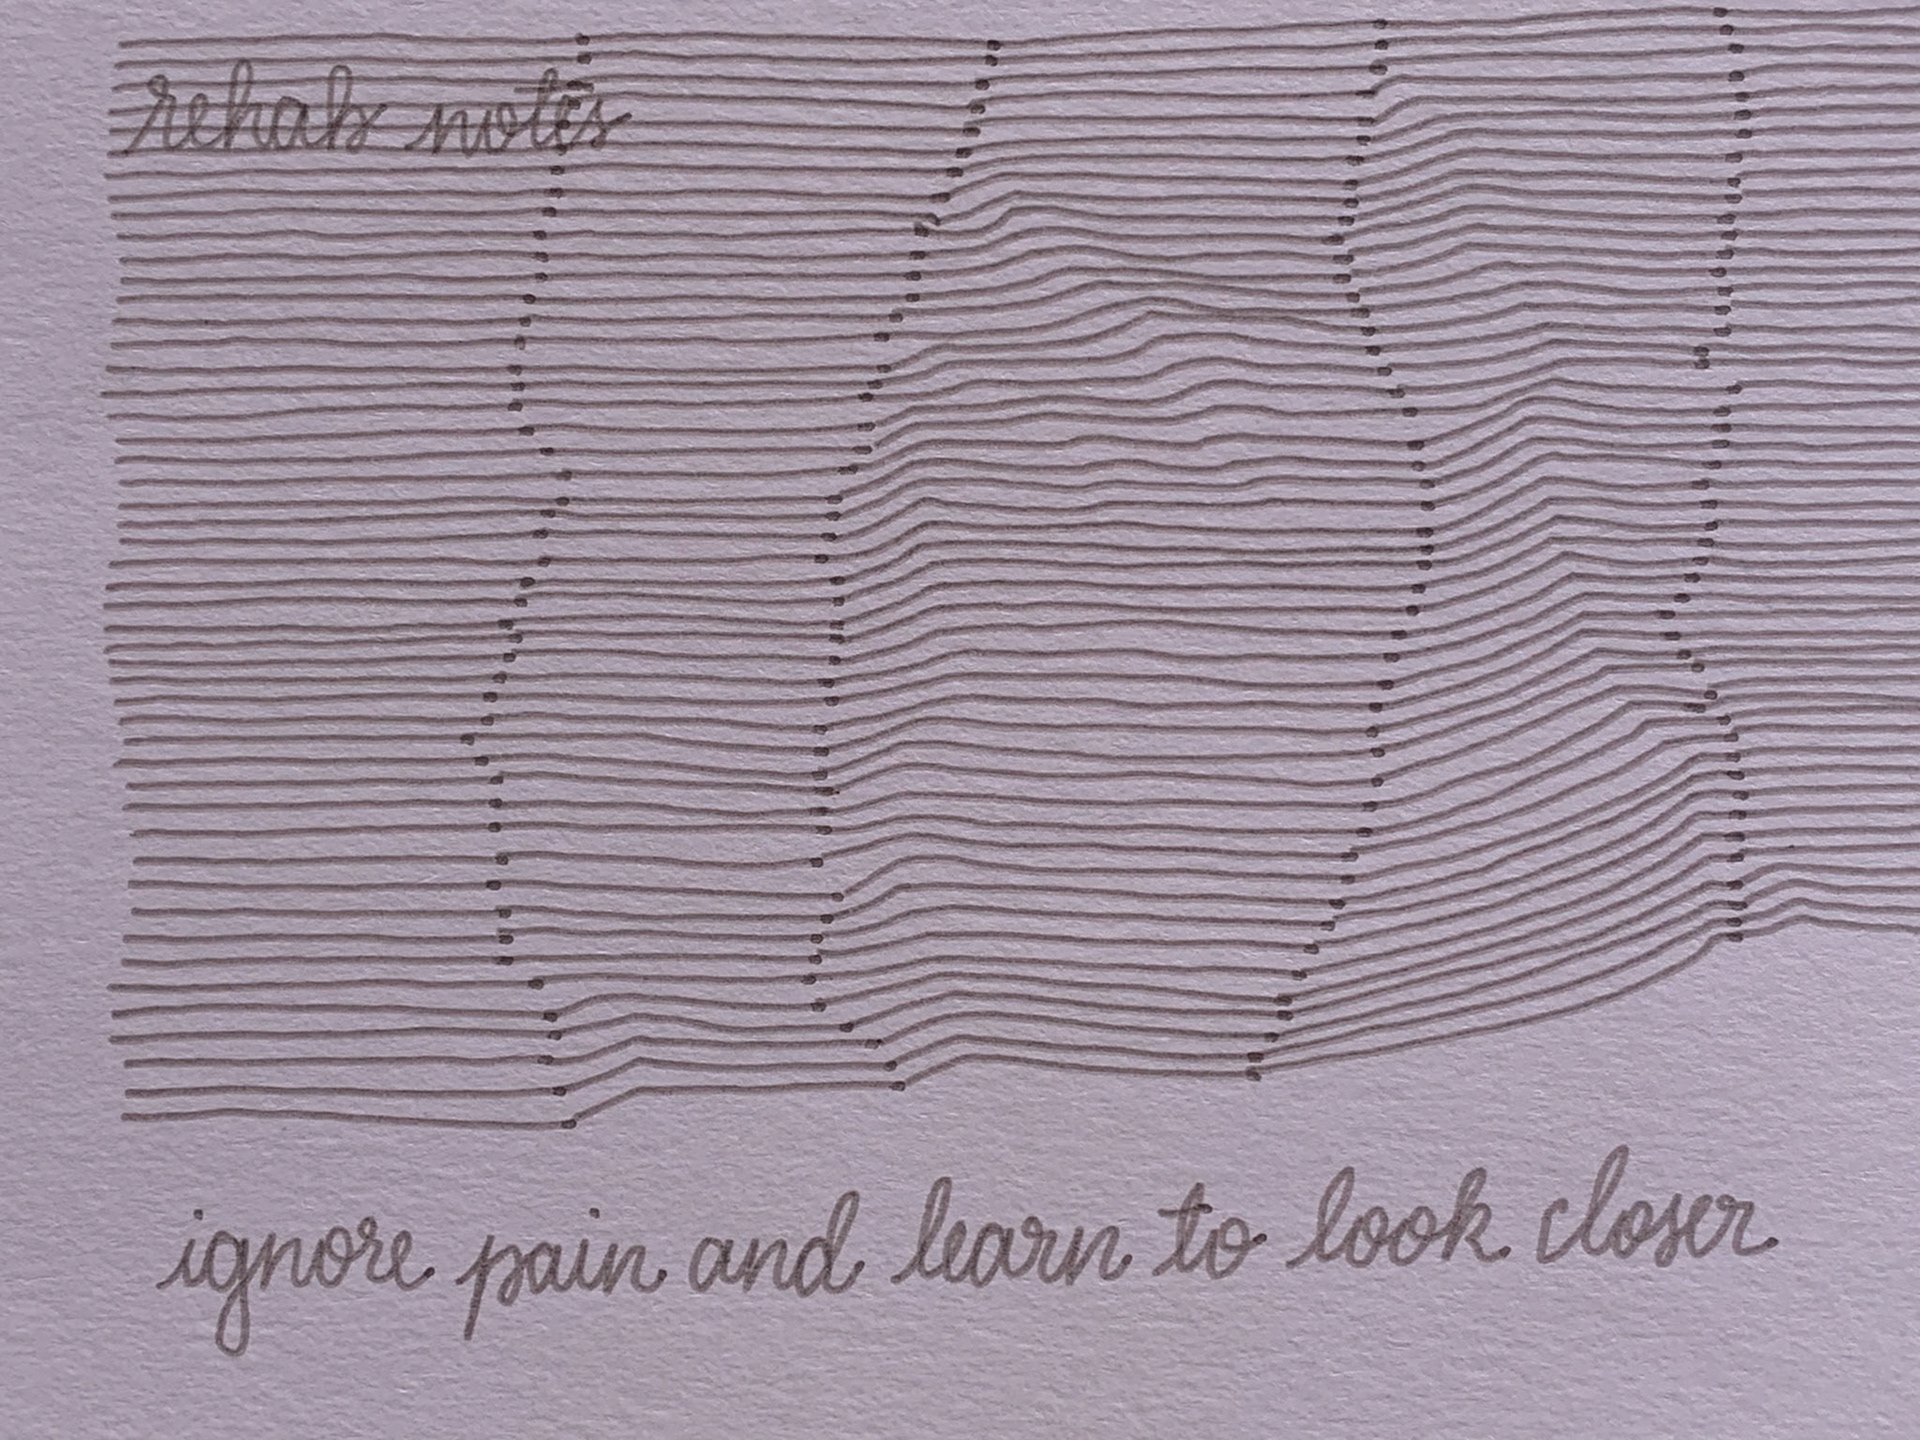 rehab notes
ignore pain and learn to look closer